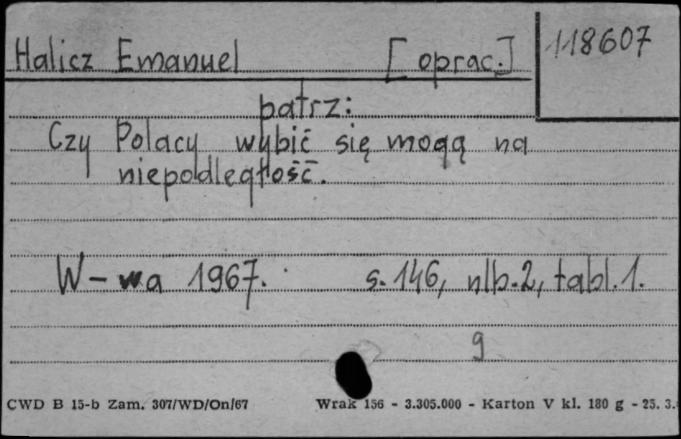 Halicz Emanuel [oprac.] 118607
patrz:
Czy Polacy wybić się mogą na
niepodległość.
W-wa 1967. s. 146, nlb. 2, tabl. 1.
9
CWD B 15-b Zam. 307/WD/On/67 Wrak 156 - 3.305.000 - Karton V kl. 180 g - 25. 3.